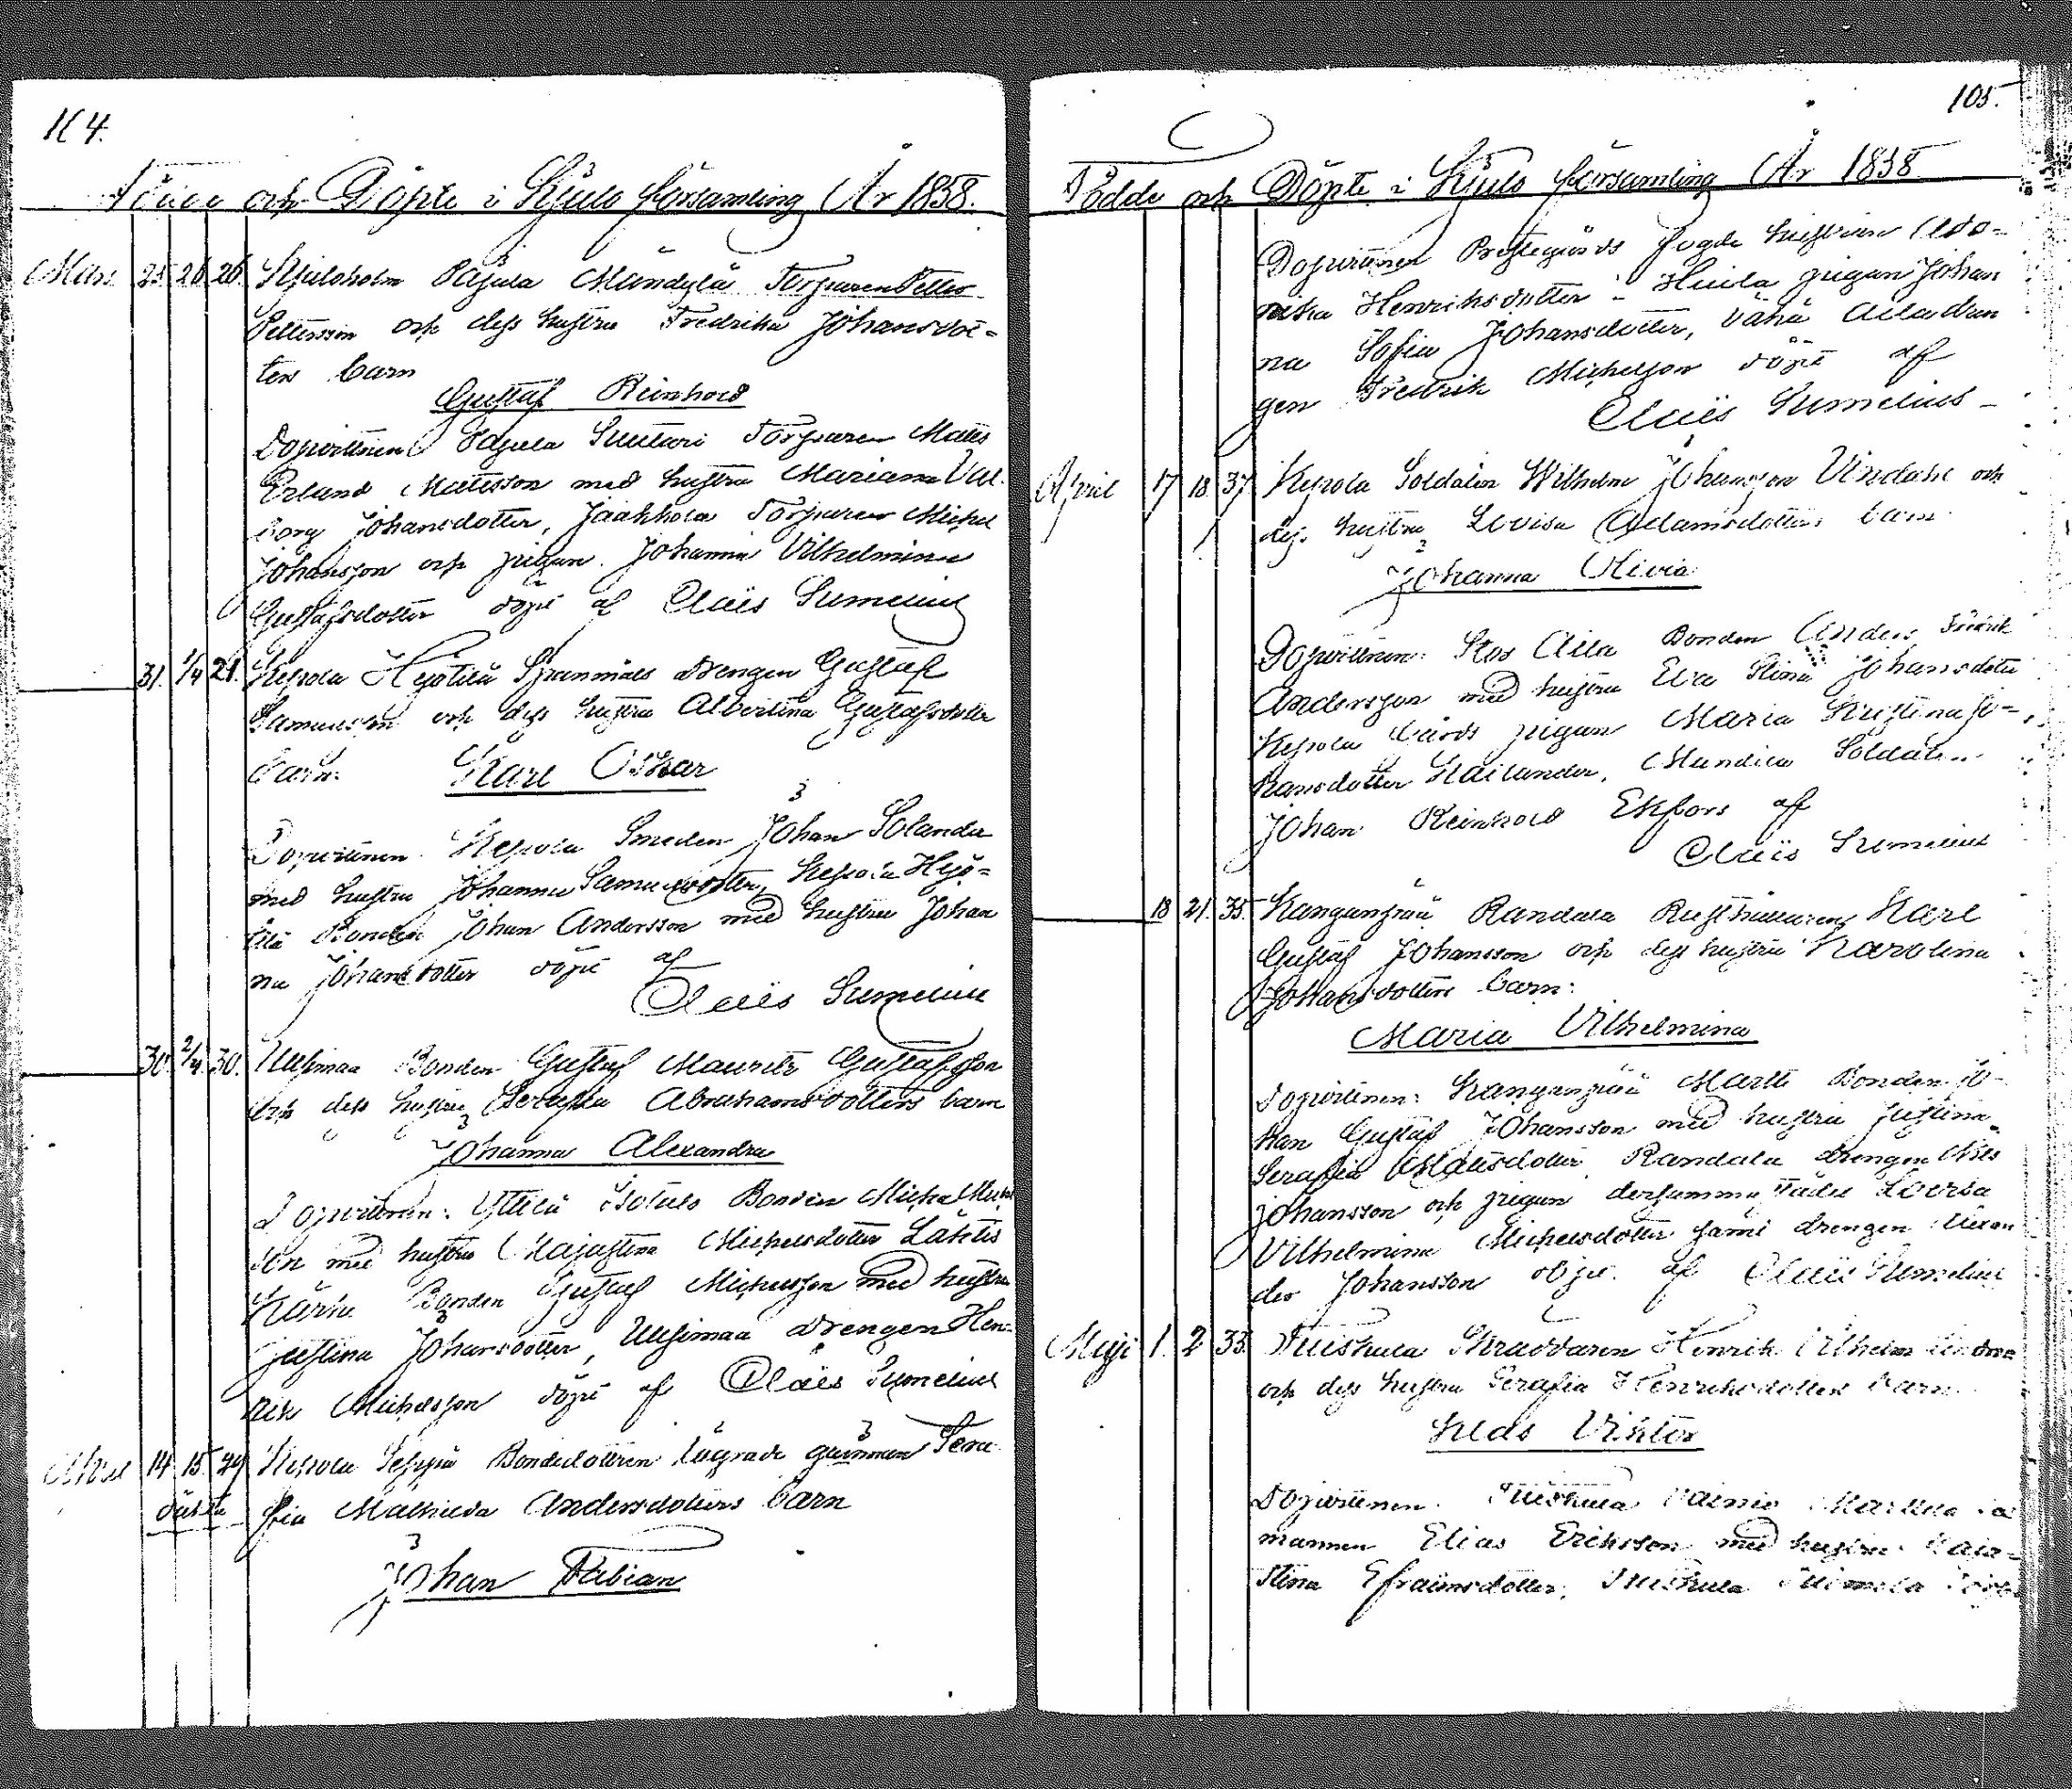 104.
Födde och Döpte i Kjulo församling År 1858.
Mars 25. 26. 26. Kjuloholm Pajula Mändylä Torparen Petter
Pettersson och dess hustru Fredrika Johansdot-
ters barn
Gustaf Reinhold
Dopvittnen Pajula Suutari Torparen Matts
Erland Mattsson med hustru Mariana Val-
borg Johansdotter, Jaakkola Torparen Michel
Johansson och pigan Johanna Vilhelmina
Gustafsdotter döpt af Claës Sumelius
31. 1/4 21. Kepola drengen Gustaf
Samuelsson och dess hustru Albertina Gustafsdotters
barn: Karl Oskar
Dopvittnen. Kepola Smeden Johan Solander
med hustru Johanna Samuelsdotter, Kepola Hejö-
tilä Bonden Johan Andersson med hustru Johan
na Johansdotter döpt af
Claës Sumelius
30. 2/4 30. Uusimaa Bonden Gustaf Mauritz Gustafsson
och dess hustru Serafia Abrahamsdotters barn
Johanna Alexandra
Dopvittnen: Yttilä Isotalo Bonden Michel Michels
son med hustru Majastina Michelsdotter Lähtis
Kärki Bonden Gustaf Michelsson med hustru
Justina Johansdotter, Uusimaa drengen Hen-
rik Michelsson döpt af Claës Sumelius
April 14 15 29 Kepola Seppä Bondedottren lägrade qvinnan Sera
oäkta fia Mathilda Andersdotters barn
Johan Fabian
105.
Födde och Döpte i Kjulo församling År 1858
Dopvittnen Prestegårds fogde hustrun Ado-
rika Henriksdotter i Huila pigan Johan
na Sofia Johansdotter, Vähä Aila dren
gen Fredrik Michelsson döpt af
Claës Sumelius
April 17 18 37 Kepola Soldaten Wilhelm Johansson Vindahl och
dess hustru Lovisa Adamsdotters barn
Johanna Olivia
Dopvittnen: Stor Aila Bonden Anders Fredrik
Andersson med hustru Eva Stina Johansdotter
Kepola Gårds pigan Maria Kristina Jo-
hansdotter Kailander, Mundila Soldaten
Johan Reinhold Ekfors af
Claës Sumelius
18 21. 35. Kanganpää Randala Rusthållaren Karl
Gustaf Johansson och dess hustru Karolina
Johansdotters barn:
Maria Vilhelmina
Dopvittnen: Kanganpää Martti Bonden Jo-
han Gustaf Johansson med hustru Justina
Serafia Mattsdotter Randala drengen Nils
Johansson och pigan dersammastädes Lovisa
Vilhelmina Michelsdotter samt drengen Alexan
der Johansson döpt af Claës Sumelius
Maji 1. 2 33. Tuiskula Skräddaren Henrik Vilhelm
och dess hustru Serafia Henriksdotters barn
Klas Viktor
Dopvittnen. Tuiskula Vainio
mannen Elias Eriksson med hustru Caja-
Stina Efraimsdotter, Tuiskula